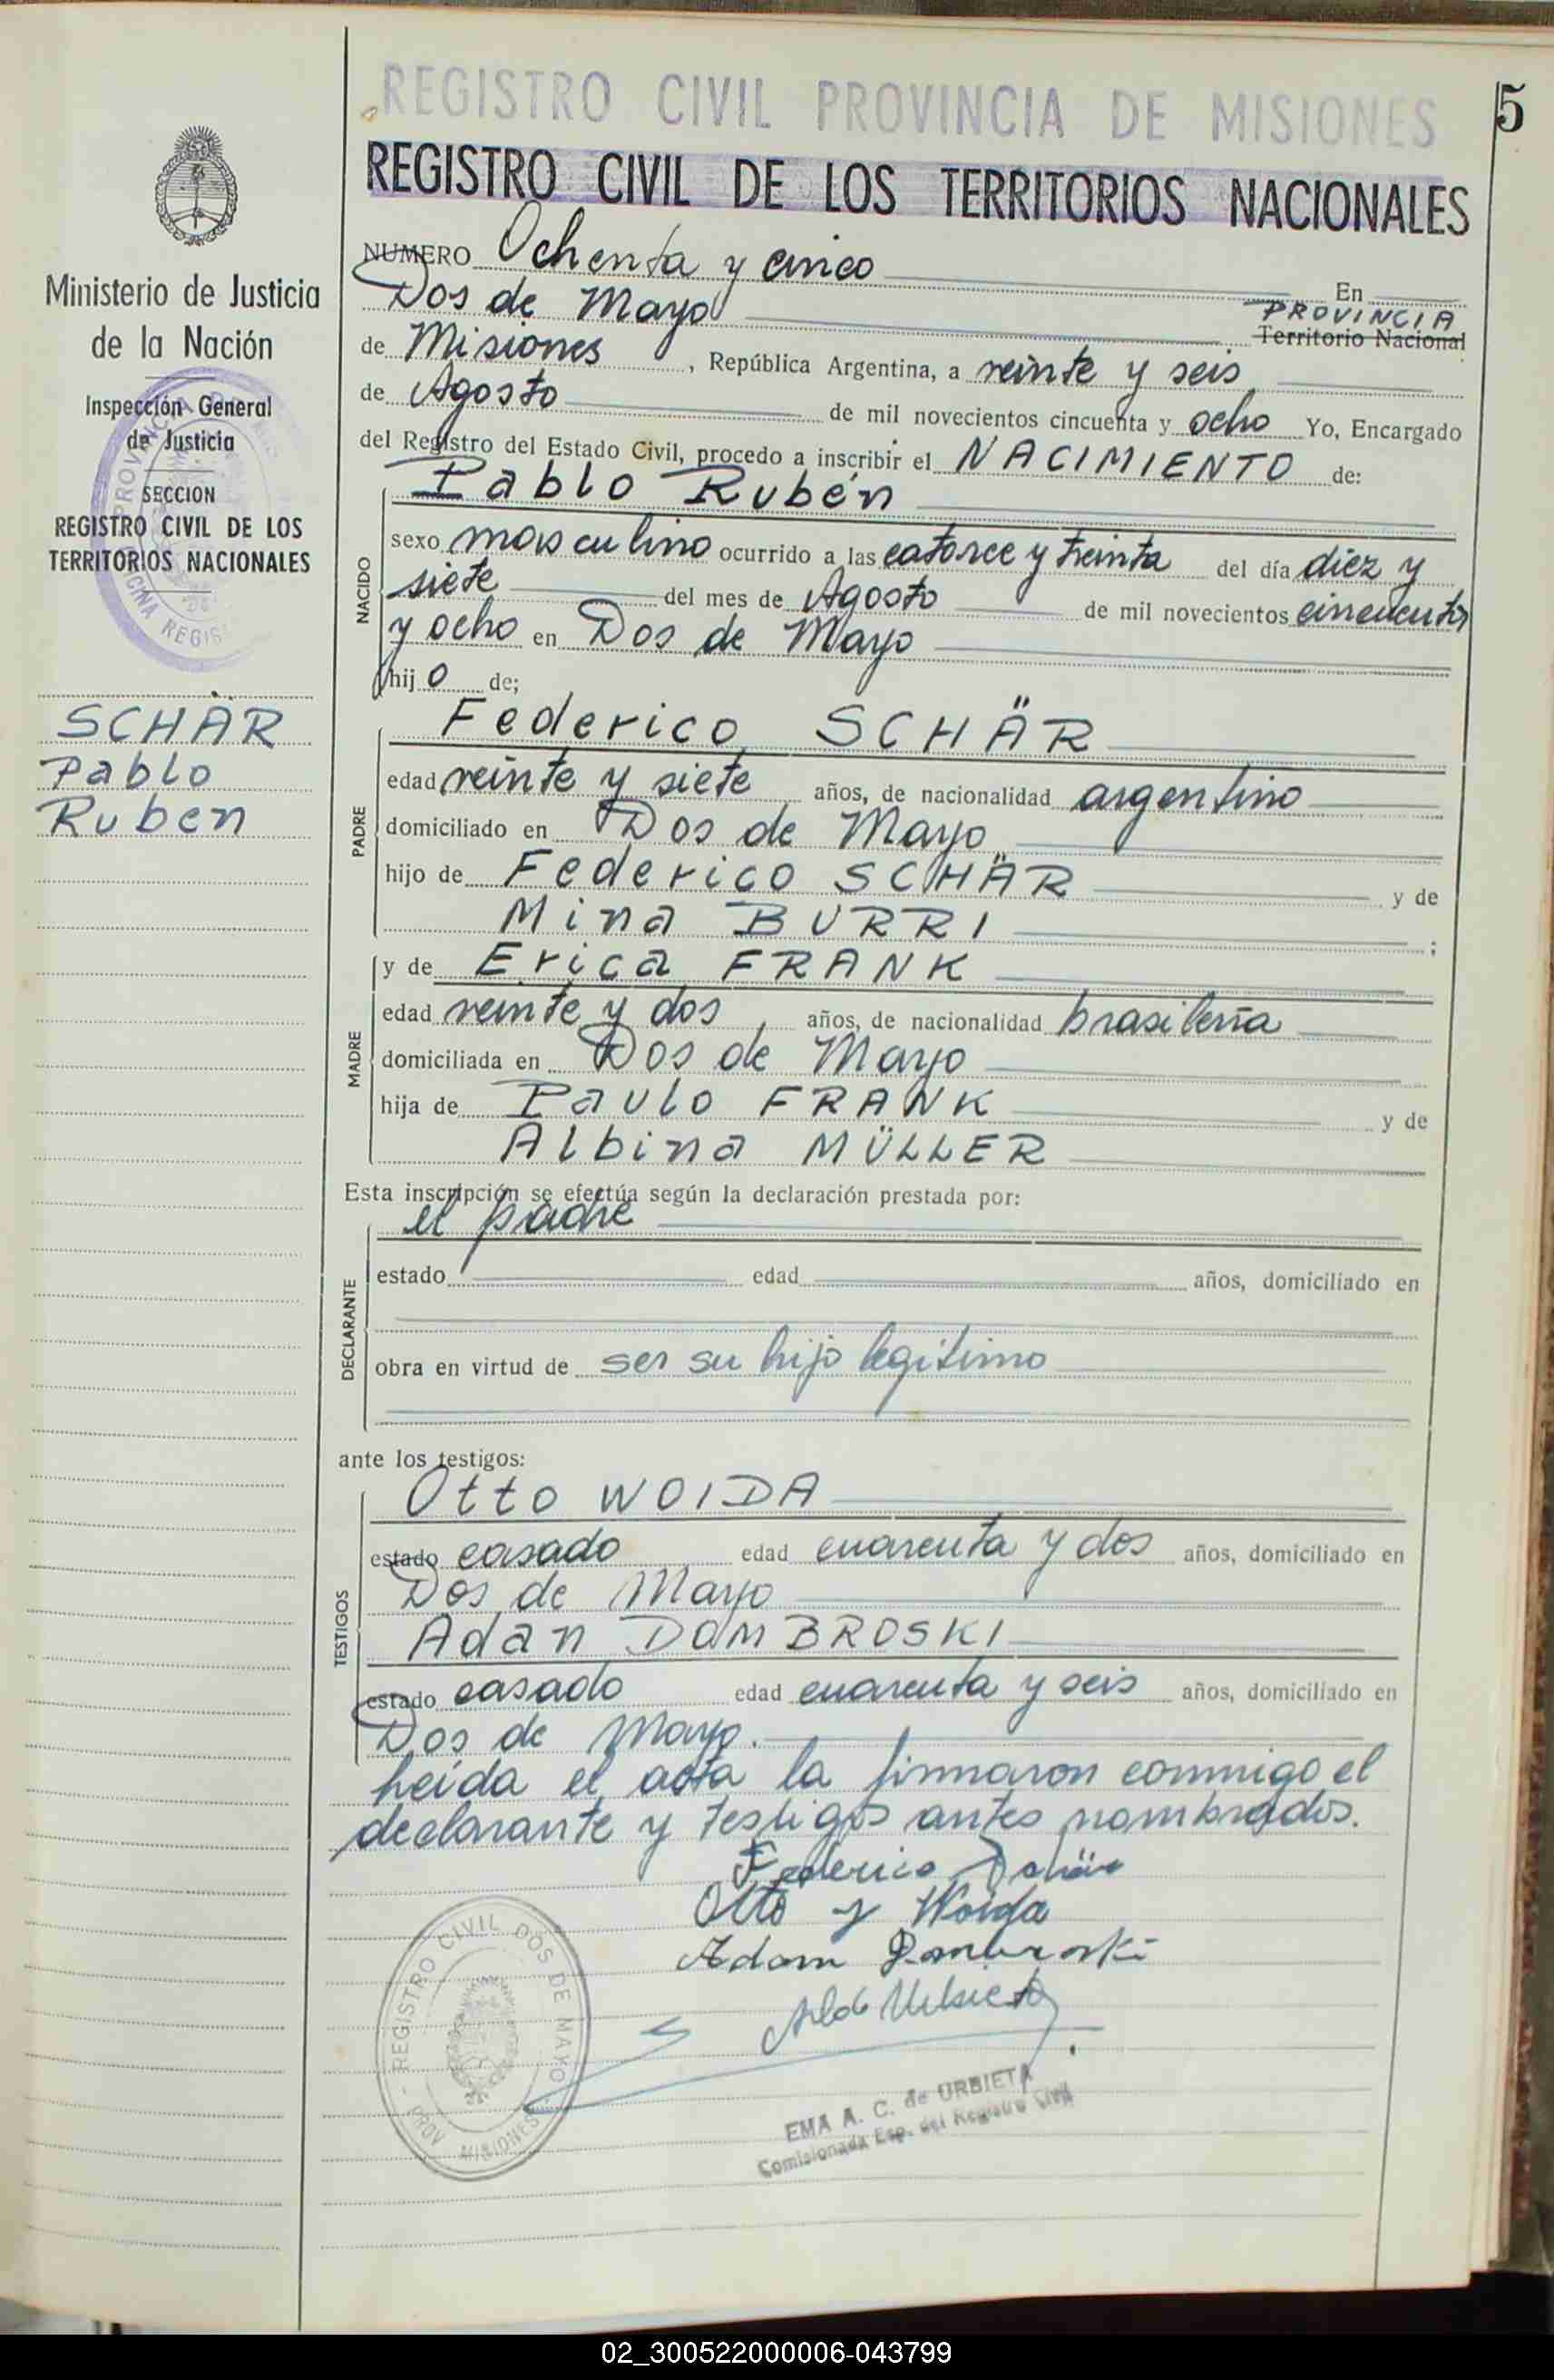 REGISTRO CIVIL PROVINCIA DE MISIONES
5
REGISTRO CIVIL DE LOS TERRITORIOS NACIONALES
Ministerio de Justicia
de la Nación
Inspección General
de Justicia
SECCION
REGISTRO CIVIL DE LOS
TERRITORIOS NACIONALES
SCHÄR
Pablo
Ruben
NUMERO Ochenta y cinco
En
Dos de Mayo PROVINCIA
Territorio Nacional
de Misiones, República Argentina, a veinte y seis
de Agosto de mil novecientos cincuenta y ocho Yo, Encargado
del Registro del Estado Civil, procedo a inscribir el NACIMIENTO de:
NACIDO
Pablo Rubén
sexo masculino ocurrido a las catorce y treinta del día diez y
siete del mes de Agosto de mil novecientos cincuenta
y ocho en Dos de Mayo
hijo de;
PADRE
Federico SCHÄR
edad veinte y siete años, de nacionalidad argentino
domiciliado en Dos de Mayo
hijo de Federico SCHÄR y de
Mina BURRI ;
MADRE
y de Erica FRANK
edad veinte y dos años, de nacionalidad brasileña
domiciliada en Dos de Mayo
hija de Paulo FRANK y de
Albina MÜLLER
Esta inscripción se efectúa según la declaración prestada por:
DECLARANTE
el padre
estado edad años, domiciliado en
obra en virtud de ser su hijo legitimo
ante los testigos:
TESTIGOS
Otto WOIDA
estado casado edad cuarenta y dos años, domiciliado en
Dos de Mayo
Adan DOMBROSKI
estado casado edad cuarenta y seis años, domiciliado en
Dos de Mayo.
Leida el acta la firmaron conmigo el
declarante y testigos antes nombrados.
Federico Schär
Otto y Woida
Adam Dombroski
REGISTRO CIVIL DOS DE MAYO
PROV MISIONES
EMA A. C. de URBIETA
Comisionada Esp. del Registro Civil
02_300522000006-043799